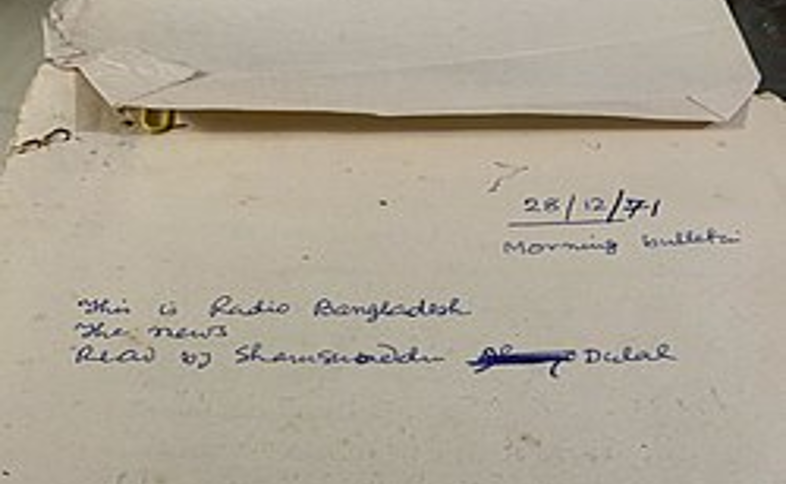 28/12/71
Morning bulletin
This is Radio Bangladesh
The news
Read by Shamsuddin Dulal